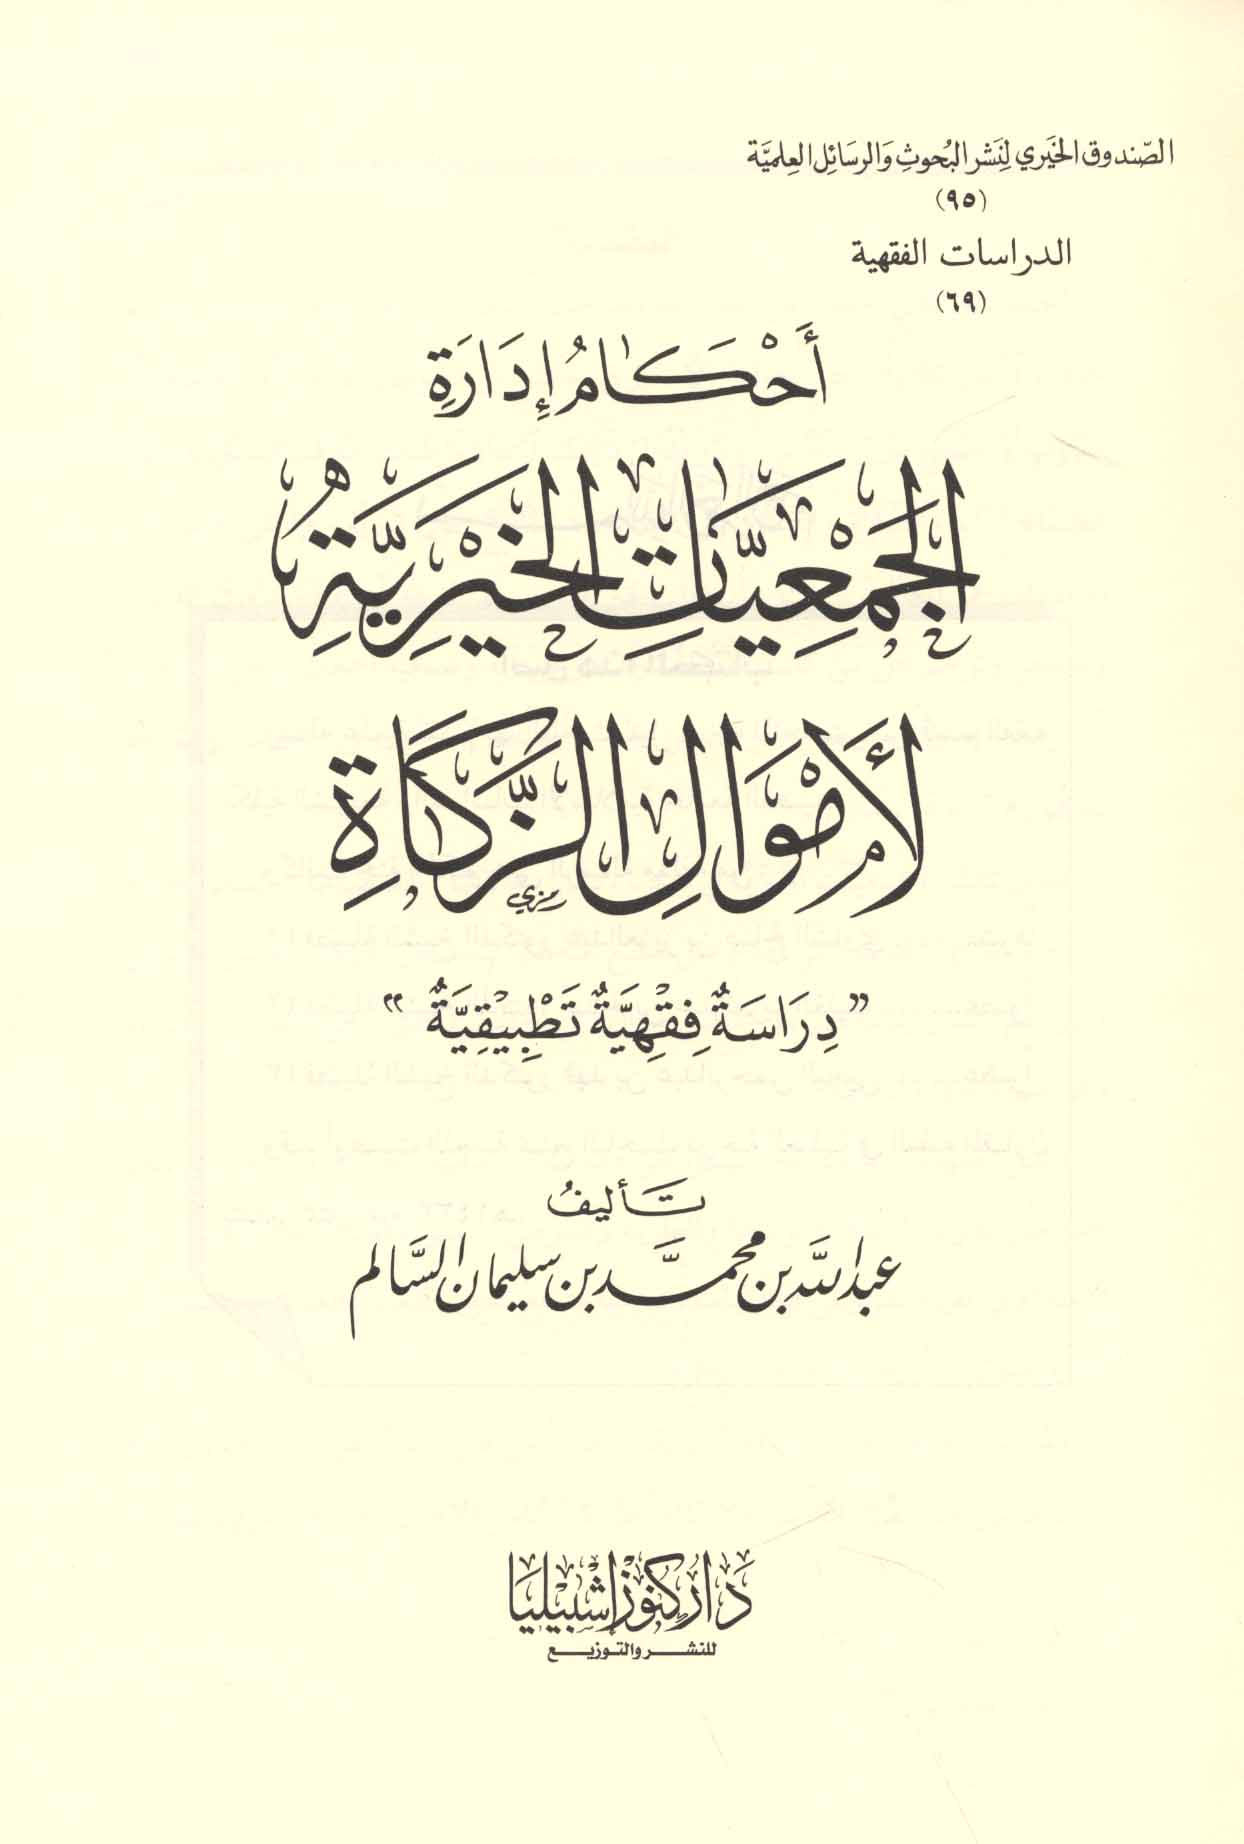 الصندوق الخيري لنشر البحوث والرسائل العلمية
(٩٥)
الدراسات الفقهية
(٦٩)
أحكام إدارة
الجمعيات الخيرية
لأموال الزكاة
رمزي
"دراسة فقهية تطبيقية"
تأليف
عبدالله بن محمد بن سليمان السالم
دار كنوز إشبيليا
للنشر والتوزيع